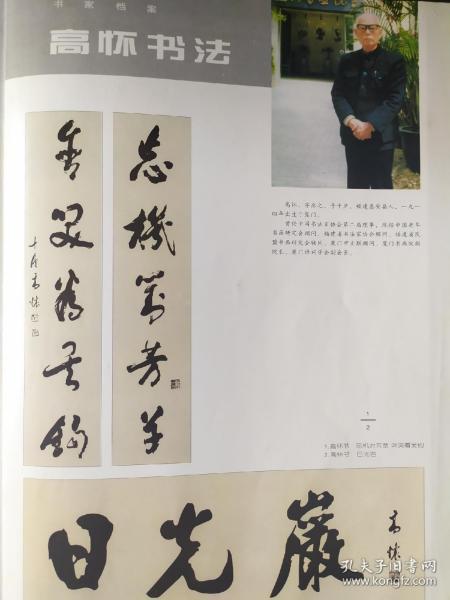 书家档案
高怀书法
忘機對芳草
含笑看吴鉤
高怀，字示之，号十夕，福建惠安县人，一九一
四年出生于厦门。
曾任中国书法家协会第二届理事，现任中国老年
书画研究会顾问、福建省书法家协会顾问、福建省民
盟书画研究会顾问、厦门市文联顾问、厦门书画院副
院长、厦门诗词学会副会长。
1
2
1.高怀书 忘机对芳草 含笑看吴钩
2.高怀书 日光岩
日光巖
高怀
孔夫子旧书网
www.kongfz.com